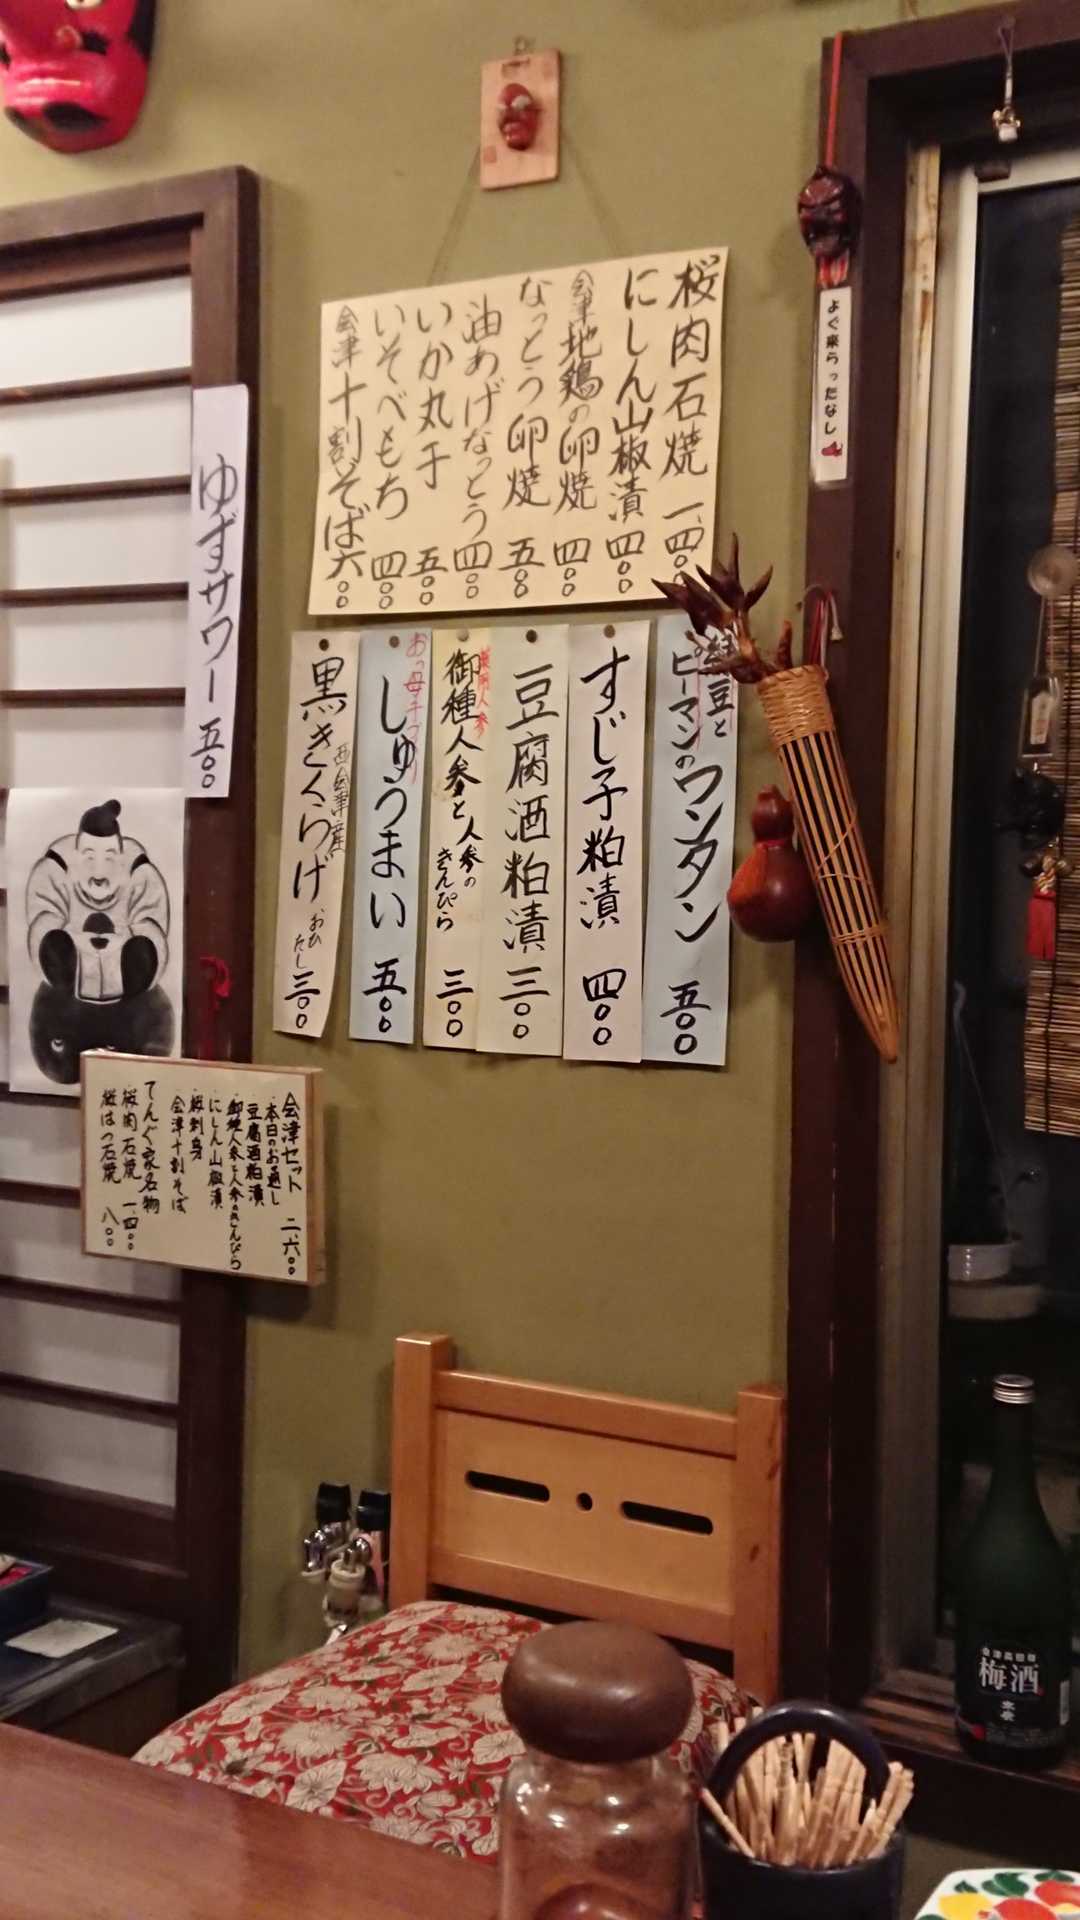 桜肉石焼 一、四〇〇
にしん山椒漬 四〇〇
会津地鶏の卵焼 四〇〇
なっとう卵焼 五〇〇
油あげなっとう 四〇〇
いか丸干 五〇〇
いそべもち 四〇〇
会津十割そば 六〇〇
よぐ来らったなし
ゆずサワー 五〇〇
豆と
ピーマンのワンタン 五〇〇
すじ子粕漬 四〇〇
豆腐酒粕漬 三〇〇
薬用人参
御種人参と人参のきんぴら 三〇〇
お母手づくり
しゅうまい 五〇〇
西会津産
黒きくらげ おひたし 三〇〇
会津セット 二、六〇〇
本日のお通し
豆腐酒粕漬
御種人参と人参のきんぴら
にしん山椒漬
桜刺身
会津十割そば
てんぐ家名物
桜肉石焼 一、四〇〇
桜はつ石焼 八〇〇
梅酒